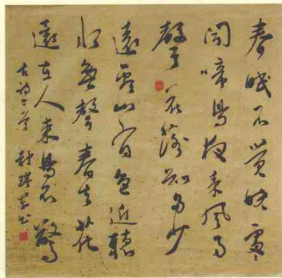 春眠不覺曉處
聞啼鳥夜来風雨
聲花落知多少
遠看山有色近聽
水無聲春去花
還在人来鳥不驚
古詩二首 書